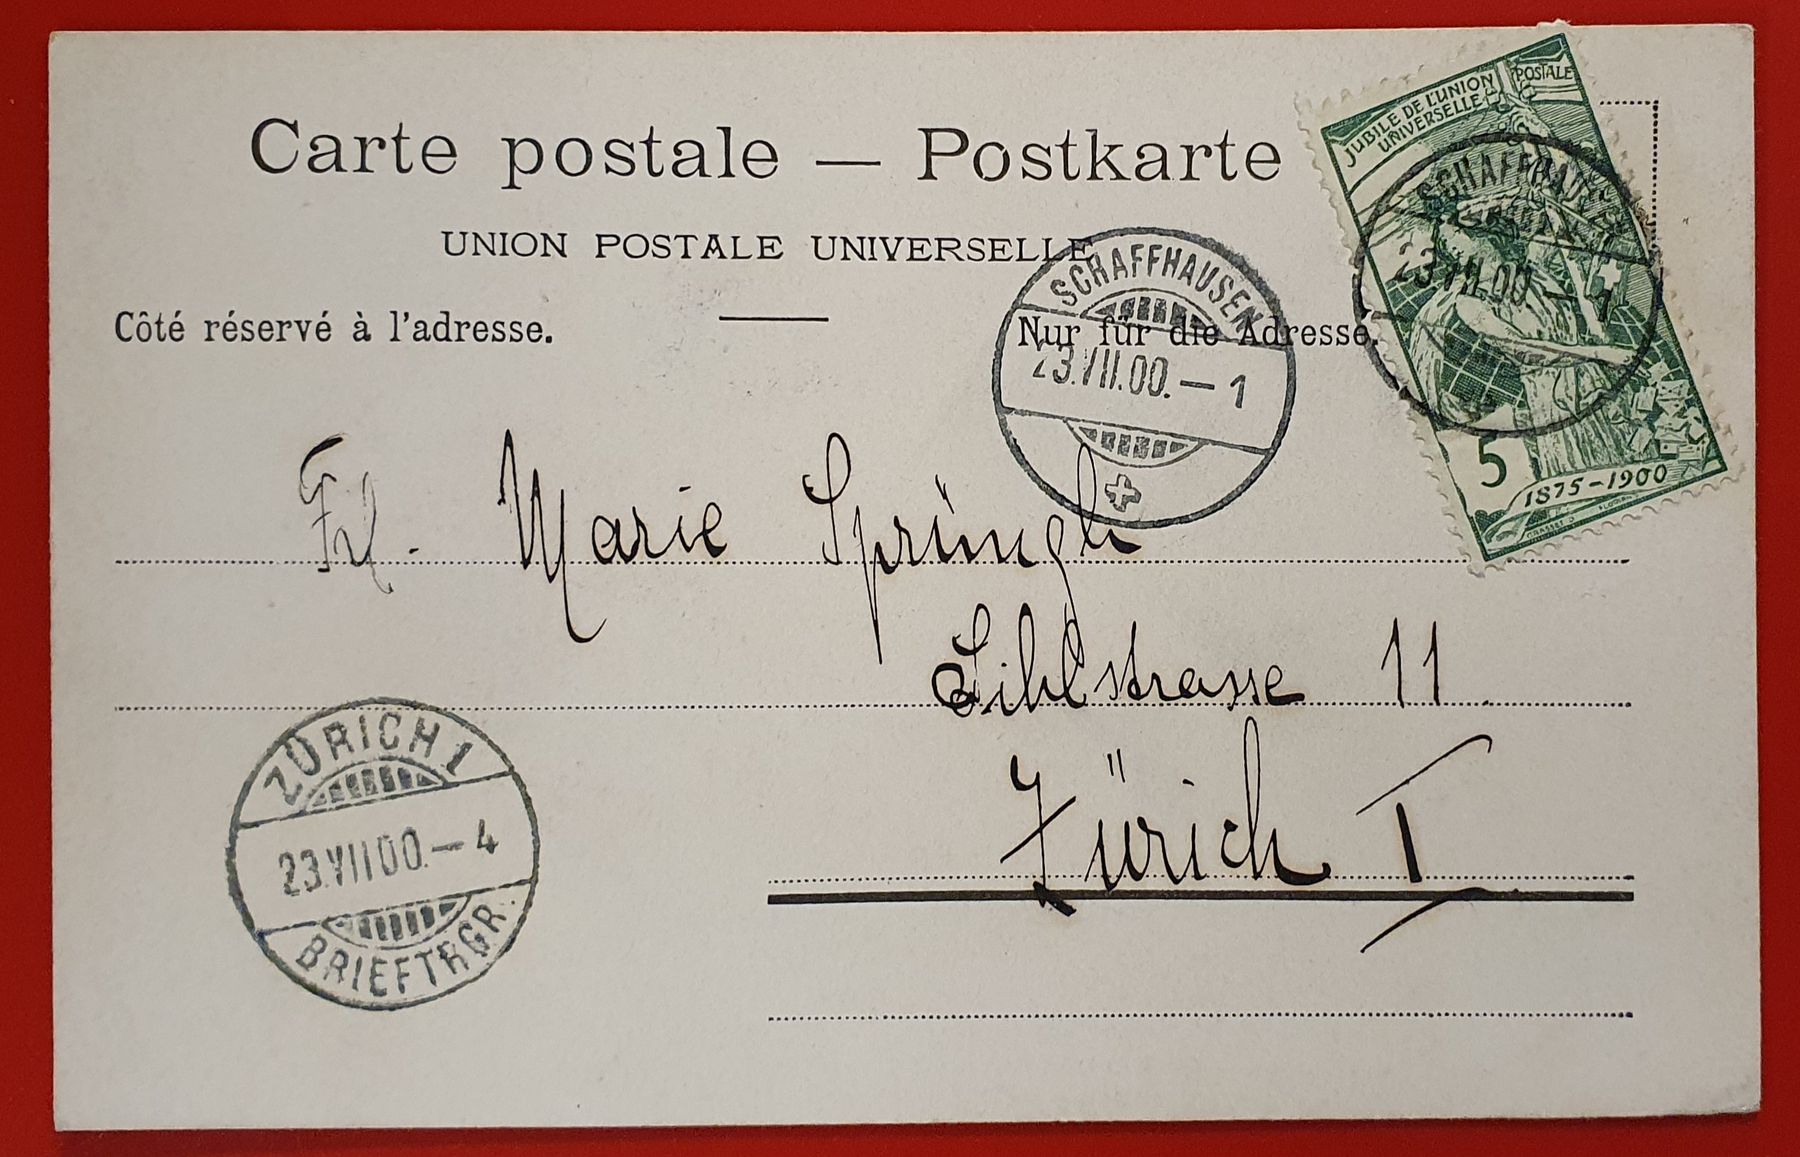 Carte postale — Postkarte
UNION POSTALE UNIVERSELLE
Côté réservé à l'adresse.
Nur für die Adresse.
JUBILE DE L'UNION POSTALE
UNIVERSELLE
5
1875-1900
GRASSET
SCHAFFHAUSEN
23.VII.00.—1
SCHAFFHAUSEN
23.VII.00.—1
Frl. Marie Sprüngli
Sihlstrasse 11.
Zürich I
ZÜRICH 1
23.VII00.—4
BRIEFTRGR.